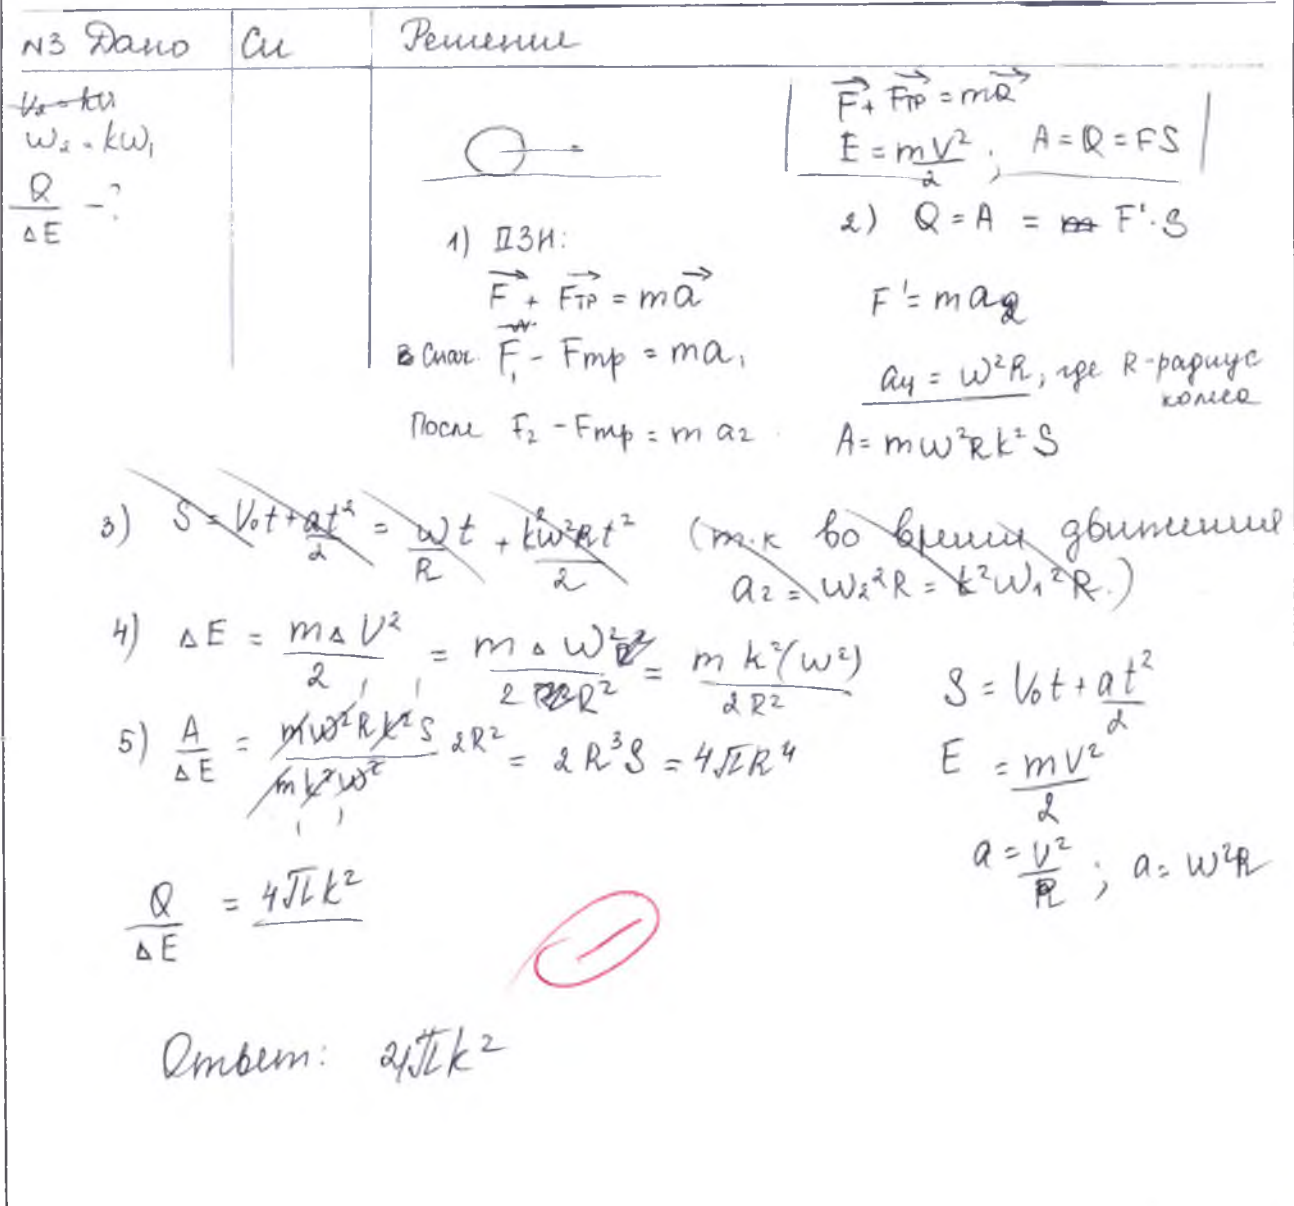 N3 Дано | Си | Решение
V₂ = kV₁
ω₂ = kω₁
Q/ΔE - ?
F⃗ + F⃗тр = ma⃗
E = mV²/2 ; A = Q = FS
1) IIЗН:
F⃗ + F⃗тр = ma⃗
В снач. F₁ - Fтр = ma₁
После F₂ - Fтр = ma₂
2) Q = A = F'·S
F' = ma₂
aц = ω²R, где R - радиус колеса
A = mω²Rk²S
3) S = V₀t + at²/2 = ω/R t + k²ω²Rt²/2 (т.к во время движения
a₂ = ω₂²R = k²ω₁²R.)
4) ΔE = mΔV²/2 = mΔω²/2R² = mk²(ω²)/2R²
5) A/ΔE = mω²Rk²S/mk²ω² 2R² = 2R³S = 4πR⁴
S = V₀t + at²/2
E = mV²/2
a = V²/R ; a = ω²R
Q/ΔE = 4πk²
Ответ: 4πk²